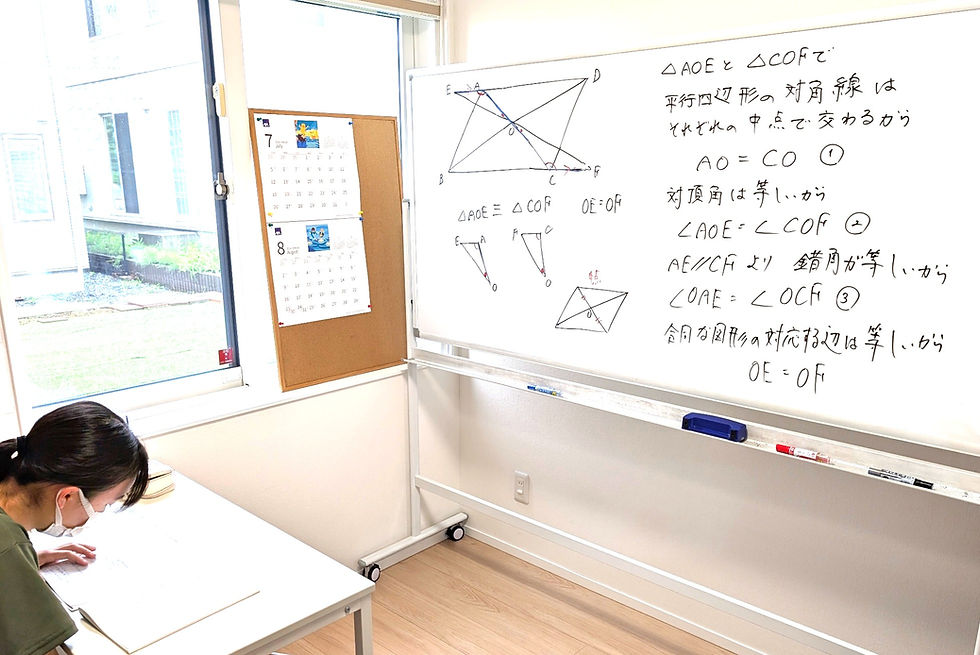 △AOEと △COFで
平行四辺形の対角線は
それぞれの中点で交わるから
AO = CO ①
対頂角は等しいから
∠AOE = ∠COF ②
AE//CFより 錯角が等しいから
∠OAE = ∠OCF ③
合同な図形の対応する辺は等しいから
OE = OF
E A D
O
B C F
△AOE ≡ △COF OE=OF
E A F C
O O
O
7
8